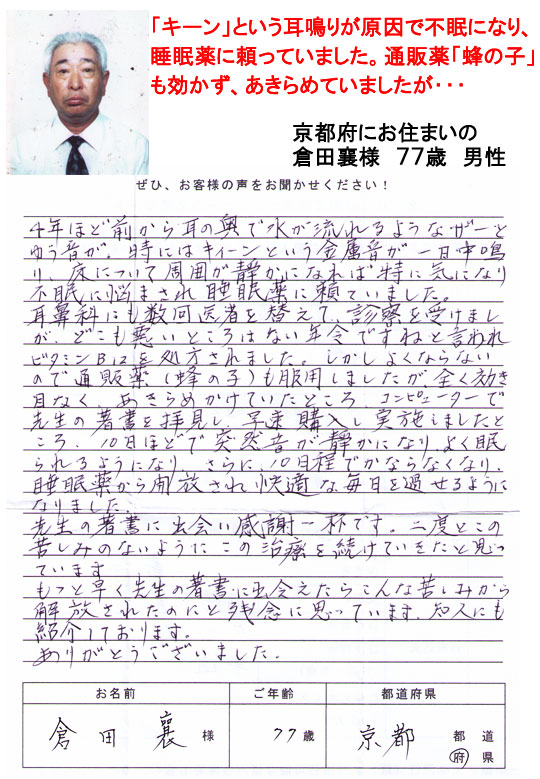 「キーン」という耳鳴りが原因で不眠になり、
睡眠薬に頼っていました。通販薬「蜂の子」
も効かず、あきらめていましたが・・・
京都府にお住まいの
倉田襄様 77歳 男性
ぜひ、お客様の声をお聞かせください！
4年ほど前から耳の奥で水が流れるようなザーと
ゆう音が。時にはキィーンという金属音が一日中鳴
り、床について周囲が静かになれば特に気になり
不眠に悩まされ睡眠薬に頼ていました。
耳鼻科にも数回医者を替えて、診察を受けまし
が、どこも悪いところはない年令ですねと言われ
ビタミンB12を処方されました。しかしよくならない
ので通販薬(蜂の子)も服用しましたが、全く効き
目なく、あきらめかけていたところ、コンピューターで
先生の著書を拝見し、早速購入し実施しましたと
ころ、10日ほどで突然音が静かになり、よく眠
られるようになり、さらに、10日程でかならなくなり、
睡眠薬から開放され快適な毎日を過せるように
なりました。
先生の著書に出会い感謝一杯です。二度とこの
苦しみのないようにこの治療を続けていきたと思っ
ています
もっと早く先生の著書に出会えたらこんな苦しみから
解放されたのにと残念に思っています。知人にも
紹介しております。
ありがとうございました。
お名前 ご年齢 都道府県
倉田 襄 様 77歳 京都 都道府県